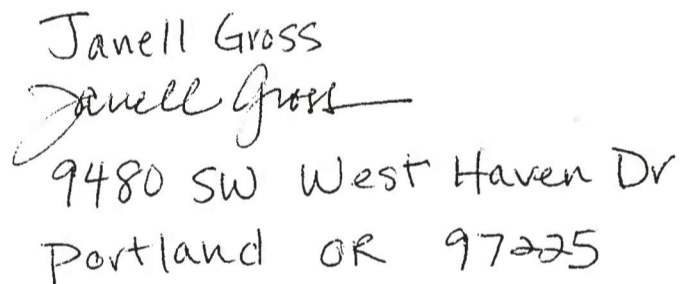 Janell Gross
Janell Gross
9480 SW West Haven Dr
Portland OR 97225